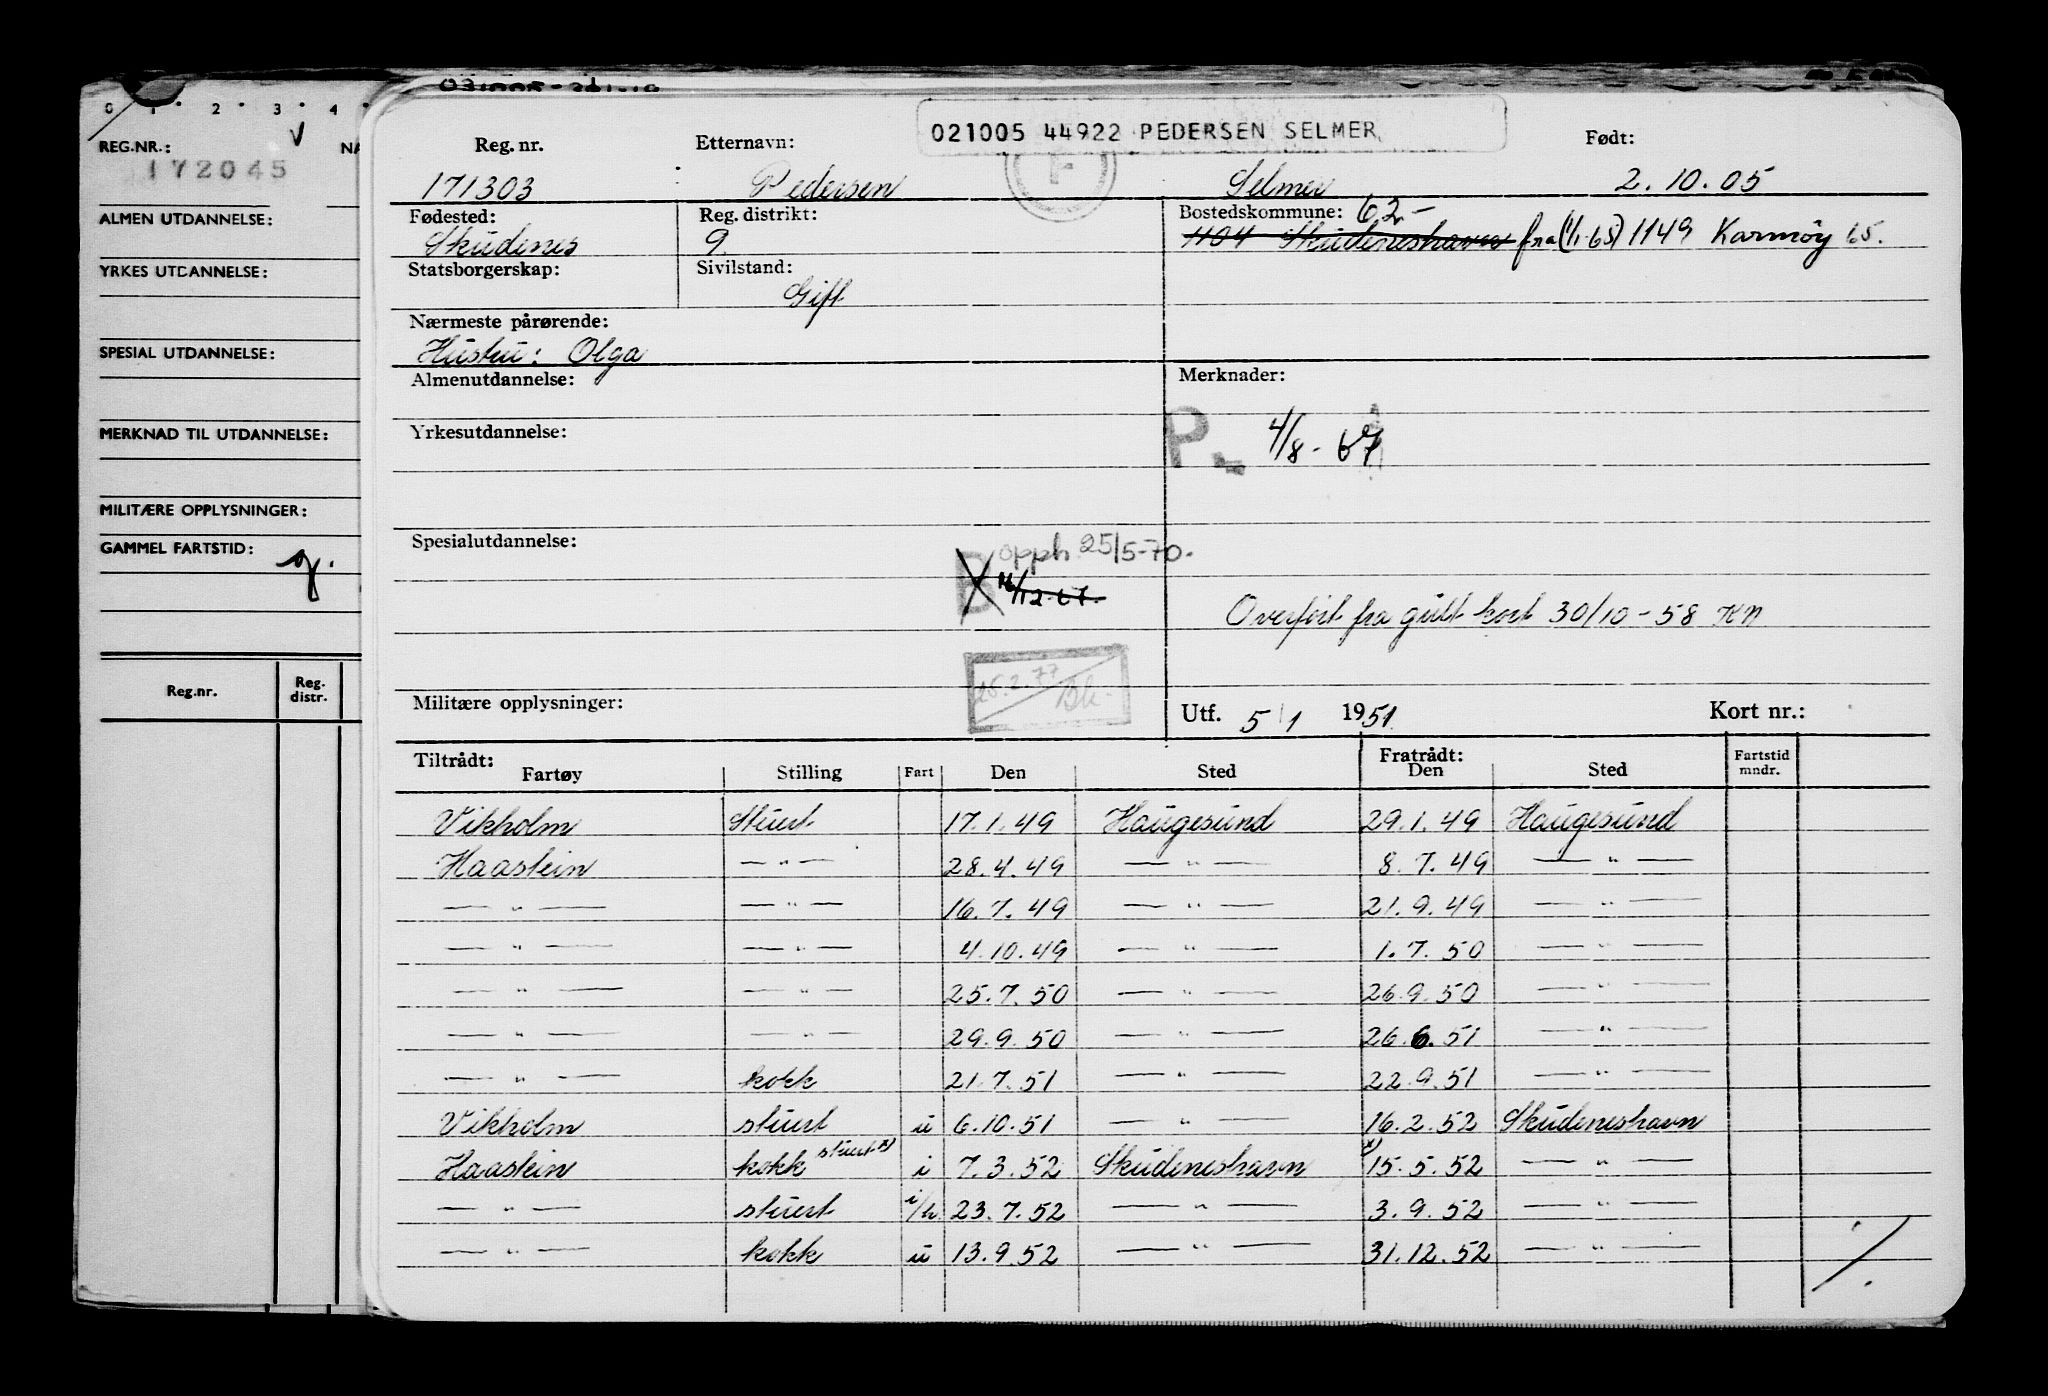 0 1 2 3 4
REG.NR.: NA
172045
ALMEN UTDANNELSE:
YRKES UTDANNELSE:
SPESIAL UTDANNELSE:
MERKNAD TIL UTDANNELSE:
MILITÆRE OPPLYSNINGER:
GAMMEL FARTSTID:
Reg.nr. Reg. distr.
021005 44922 PEDERSEN SELMER
F
Reg. nr. Etternavn: Født:
171303 Pedersen Selmer 2.10.05
Fødested: Reg. distrikt: Bostedskommune: 62-
Skudenes 9. 1104 Skudeneshavn fra (1/1-65) 1149 Karmøy 65.
Statsborgerskap: Sivilstand:
Gift
Nærmeste pårørende:
Hustru: Olga
Almenutdannelse: Merknader:
P- 4/8-67
Yrkesutdannelse:
Spesialutdannelse:
B opph 25/5-70.
12.67.
Overført fra gult kort 30/10-58 KN
25.2.77
Bk-
Militære opplysninger: Utf. 5/1 1951 Kort nr.:
Tiltrådt: Fratrådt:
Fartøy Stilling Fart Den Sted Den Sted Fartstid mndr.
Vikholm Stuert 17.1.49 Haugesund 29.1.49 Haugesund
Haastein — " — 28.4.49 — " — 8.7.49 — " —
— " — — " — 16.7.49 — " — 21.9.49 — " —
— " — — " — 4.10.49 — " — 1.7.50 — " —
— " — — " — 25.7.50 — " — 26.9.50 — " —
— " — — " — 29.9.50 — " — 26.6.51 — " —
— " — kokk 21.7.51 — " — 22.9.51 — " —
Vikholm stuert u 6.10.51 — " — 16.2.52 Skudeneshavn
Haastein kokk stuert x) i 7.3.52 Skudeneshavn x) 15.5.52 — " —
— " — stuert i/u 23.7.52 — " — 3.9.52 — " —
— " — kokk u 13.9.52 — " — 31.12.52 — " —